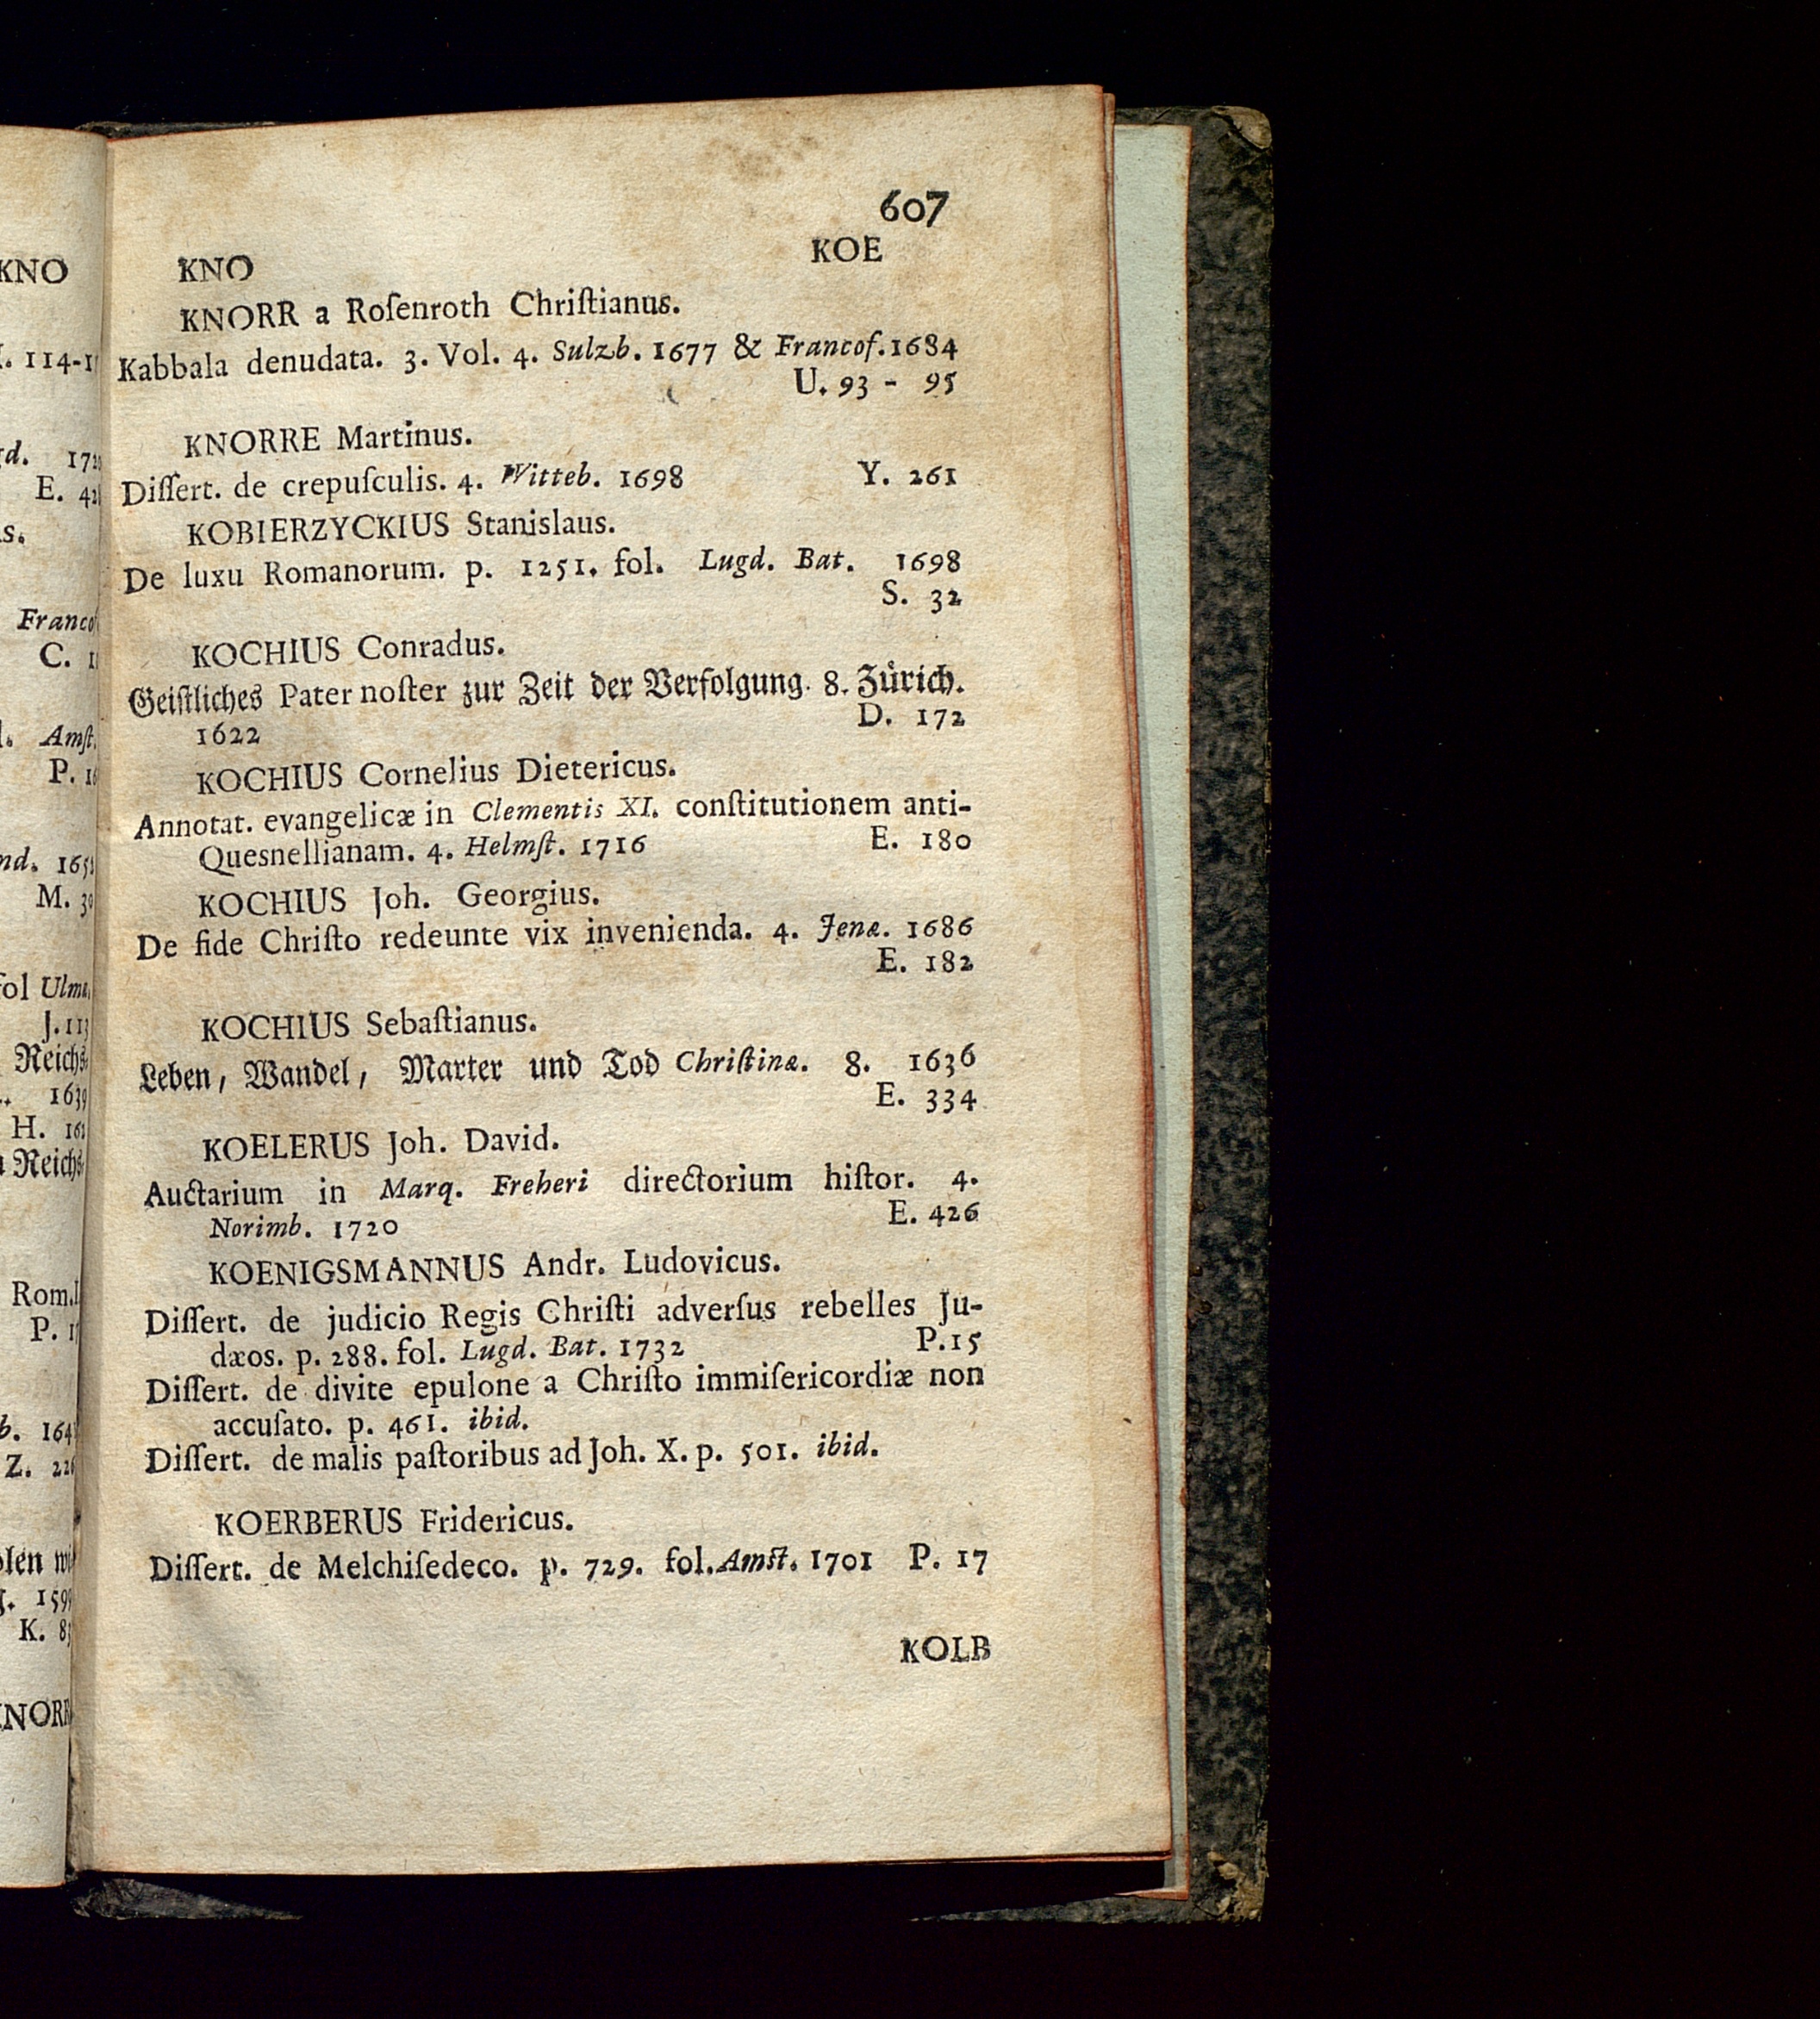 607
KNO KOE
KNORR a Roſenroth Chriſtianus.
Kabbala denudata. 3. Vol. 4. Sulzb. 1677 & Francof. 1684
U. 93 - 95
KNORRE Martinus.
Diſſert. de crepuſculis. 4. Witteb. 1698 Y. 261
KOBIERZYCKIUS Stanislaus.
De luxu Romanorum. p. 1251. fol. Lugd. Bat. 1698
S. 32
KOCHIUS Conradus.
Geiſtliches Pater noſter zur Zeit der Verfolgung. 8. Zürich.
1622 D. 172
KOCHIUS Cornelius Dietericus.
Annotat. evangelicæ in Clementis XI. conſtitutionem anti-
Quesnellianam. 4. Helmſt. 1716 E. 180
KOCHIUS Joh. Georgius.
De fide Chriſto redeunte vix invenienda. 4. Jenæ. 1686
E. 182
KOCHIUS Sebaſtianus.
Leben, Wandel, Marter und Tod Chriſtinæ. 8. 1636
E. 334
KOELERUS Joh. David.
Auctarium in Marq. Freheri directorium hiſtor. 4.
Norimb. 1720 E. 426
KOENIGSMANNUS Andr. Ludovicus.
Diſſert. de judicio Regis Chriſti adverſus rebelles Ju-
dæos. p. 288. fol. Lugd. Bat. 1732 P. 15
Diſſert. de divite epulone a Chriſto immiſericordiæ non
accuſato. p. 461. ibid.
Diſſert. de malis paſtoribus ad Joh. X. p. 501. ibid.
KOERBERUS Fridericus.
Diſſert. de Melchiſedeco. p. 729. fol. Amſt. 1701 P. 17
KOLB